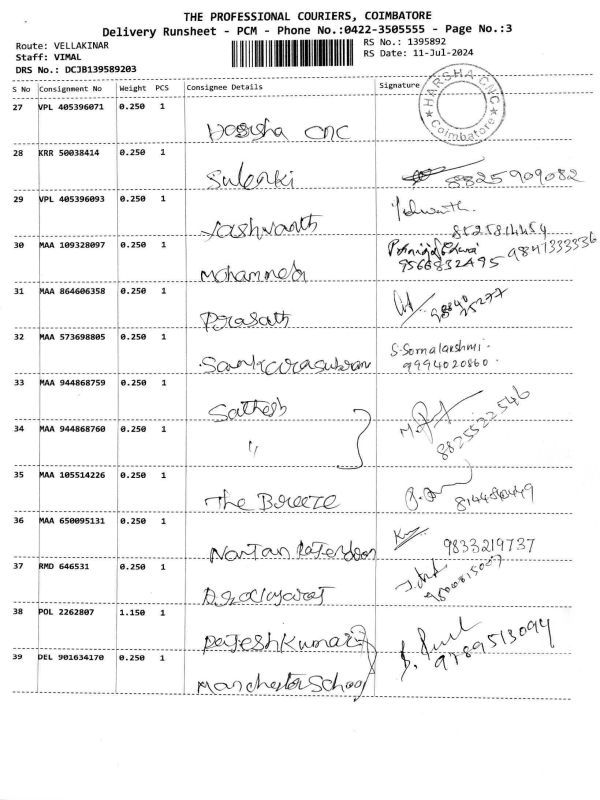 THE PROFESSIONAL COURIERS, COIMBATORE
Delivery Runsheet - PCM - Phone No.:0422-3505555 - Page No.:3
Route: VELLAKINAR
RS No.: 1395892
Staff: VIMAL
RS Date: 11-Jul-2024
DRS No.: DCJB139589203
S No Consignment No Weight PCS Consignee Details Signature
HARSHA CNC
Coimbatore
27 VPL 405396071 0.250 1
CNC
28 KRR 50038414 0.250 1
8825909082
29 VPL 405396093 0.250 1
Yashvanth
30 MAA 109328097 0.250 1
9566832495 9841333336
31 MAA 864606358 0.250 1
Prasath
32 MAA 573698805 0.250 1
S.Somalakshmi
9994020860
33 MAA 944868759 0.250 1
Sathesh
34 MAA 944868760 0.250 1
"
8825522546
35 MAA 105514226 0.250 1
The Breeze
36 MAA 650095131 0.250 1
9833219737
37 RMD 646531 0.250 1
38 POL 2262807 1.150 1
RajeshKumar
9789513094
39 DEL 901634170 0.250 1
Manchester School